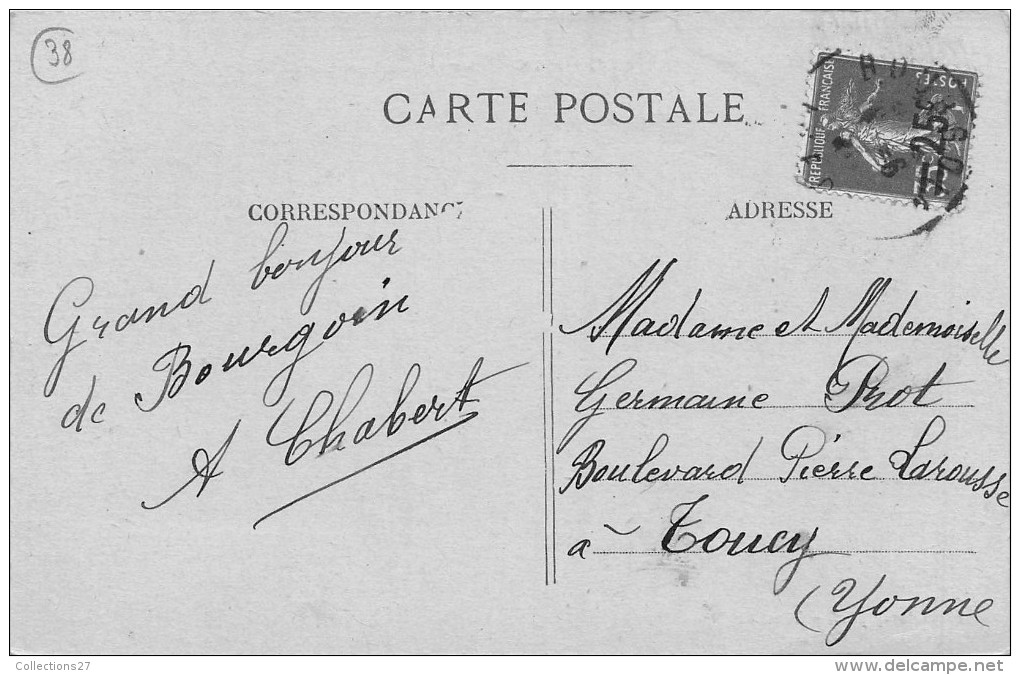 38
CARTE POSTALE
CORRESPONDANCE
ADRESSE
REPUBLIQUE FRANÇAISE
POSTES
=25c
Grand bonjour
de Bourgoin
A Chabert
Madame et Mademoiselle
Germaine Prot
Boulevard Pierre Larousse
à Toucy
(Yonne
Collections27
delcampe.net